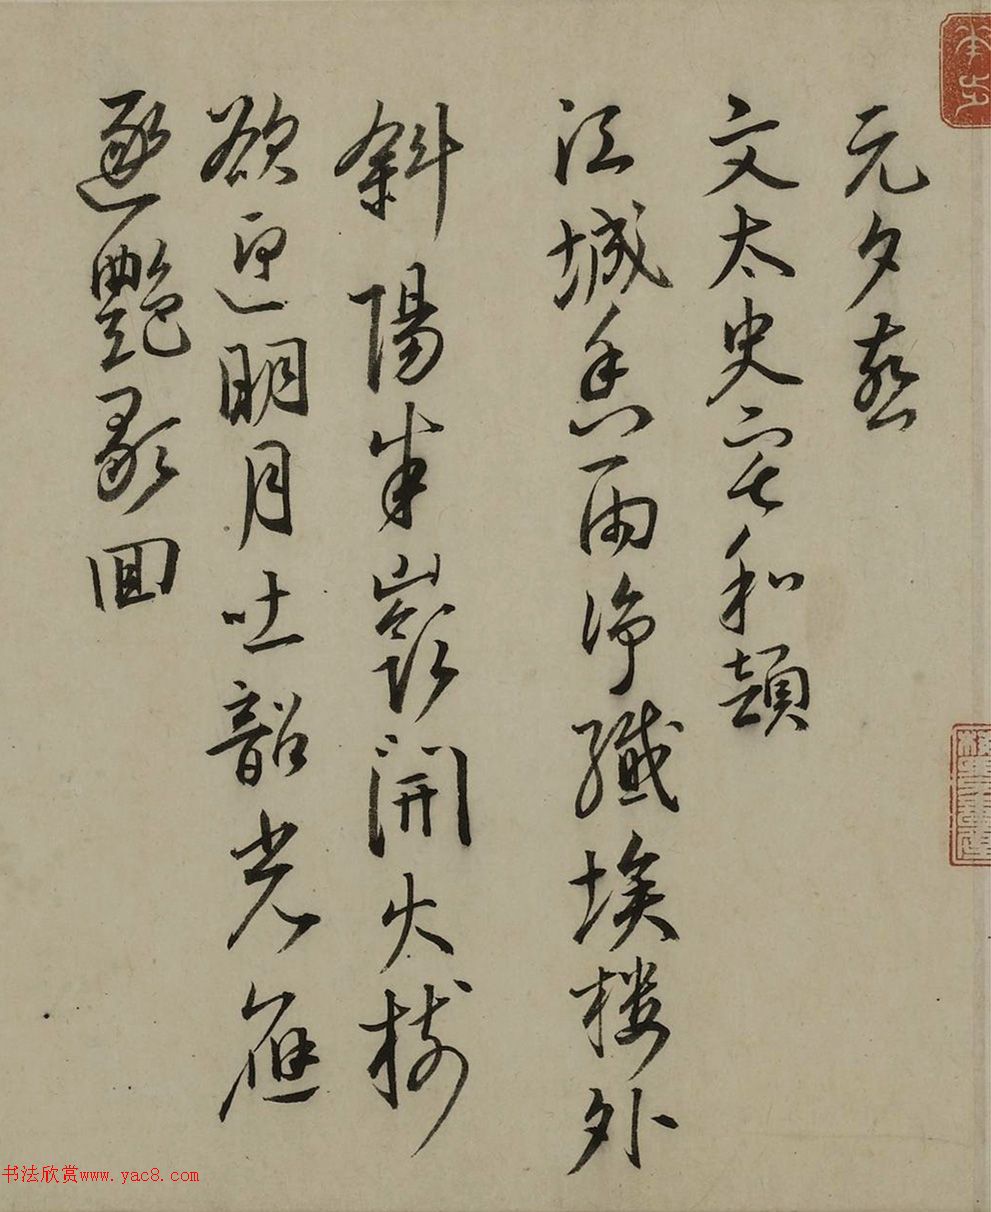 元夕燕
文太史宅和韻
江城香雨淨纖埃樓外
斜陽半嶺開火樹
欲迎明月吐韶光應
逐艷歌回
书法欣赏www.yac8.com